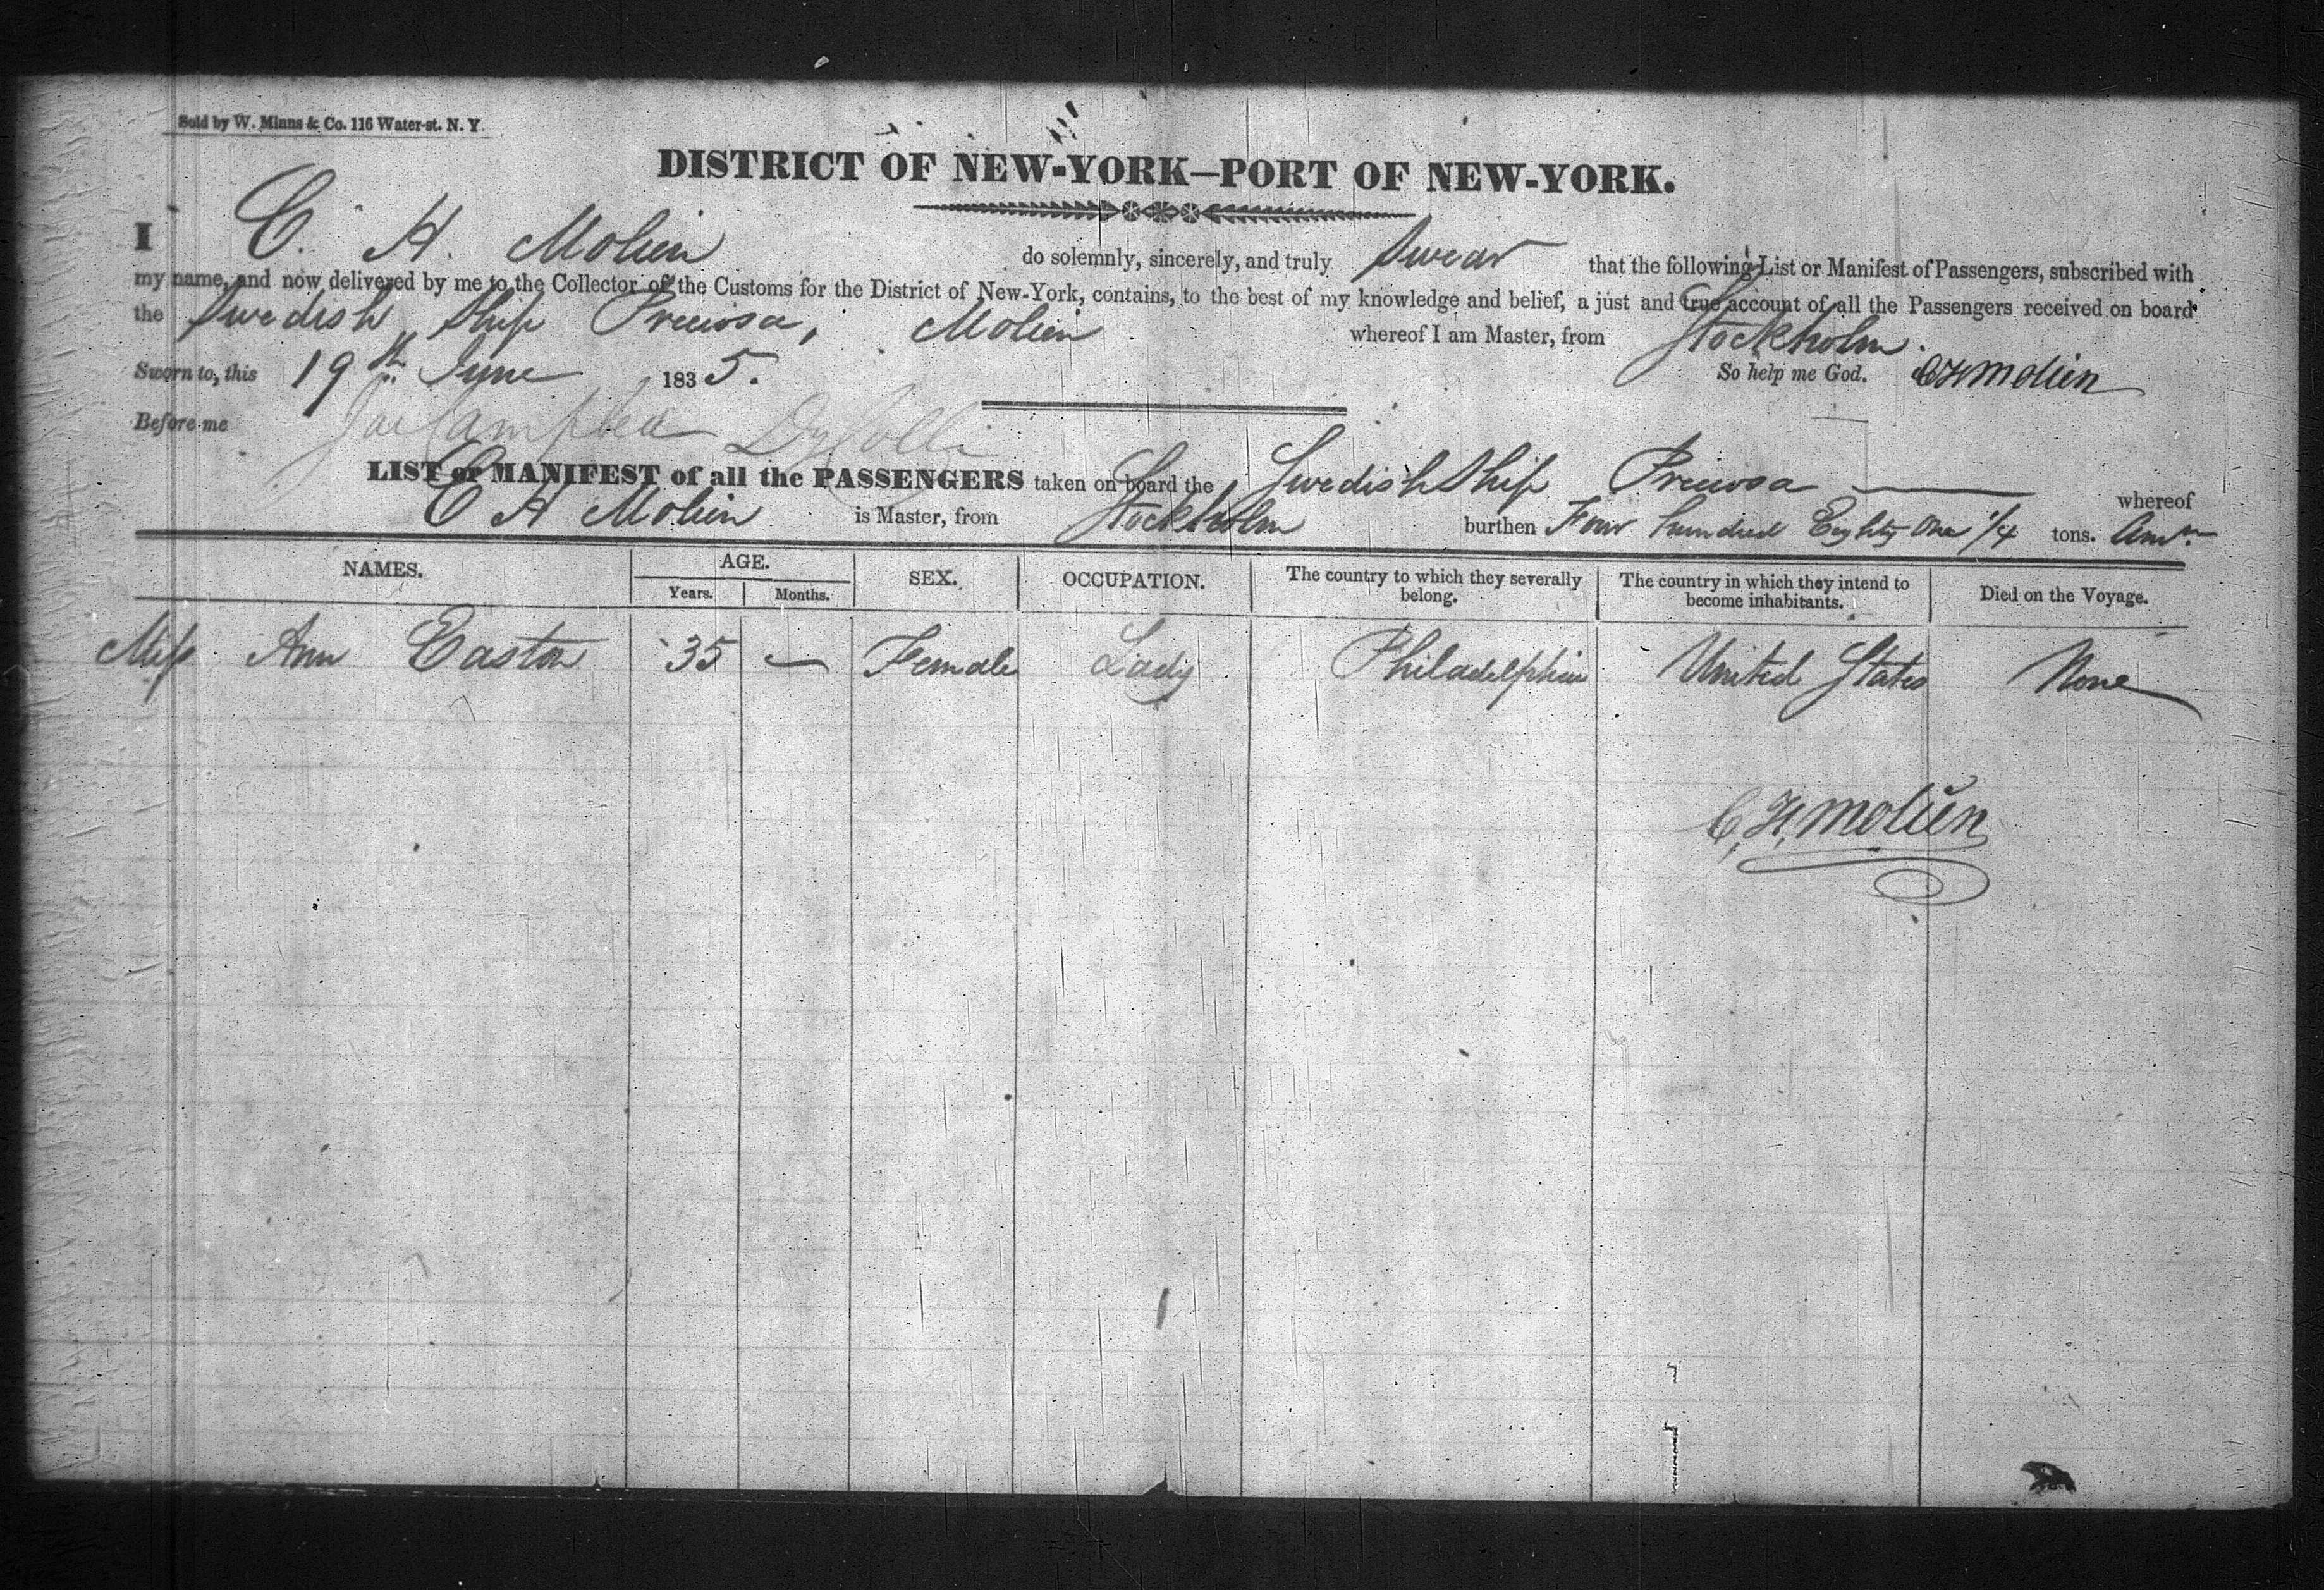 Sold by W. Minns & Co. 116 Water-st. N. Y.
DISTRICT OF NEW-YORK—PORT OF NEW-YORK.
I C. H. Molien do solemnly, sincerely, and truly Swear that the following List or Manifest of Passengers, subscribed with
my name, and now delivered by me to the Collector of the Customs for the District of New-York, contains, to the best of my knowledge and belief, a just and true account of all the Passengers received on board
the Swedish Ship Preciosa, Molien whereof I am Master, from Stockholm.
Sworn to, this 19th June 1835. So help me God. C H Molien
Before me Campbell Dy Coll
LIST or MANIFEST of all the PASSENGERS taken on board the Swedish Ship Preciosa whereof
C H Molien is Master, from Stockholm burthen Four hundred Eighty One 1/4 tons.
NAMES. AGE. SEX. OCCUPATION. The country to which they severally belong. The country in which they intend to become inhabitants. Died on the Voyage.
Years. Months.
Miss Ann Easton 35 — Female Lady Philadelphia United States None
C. H. Molien